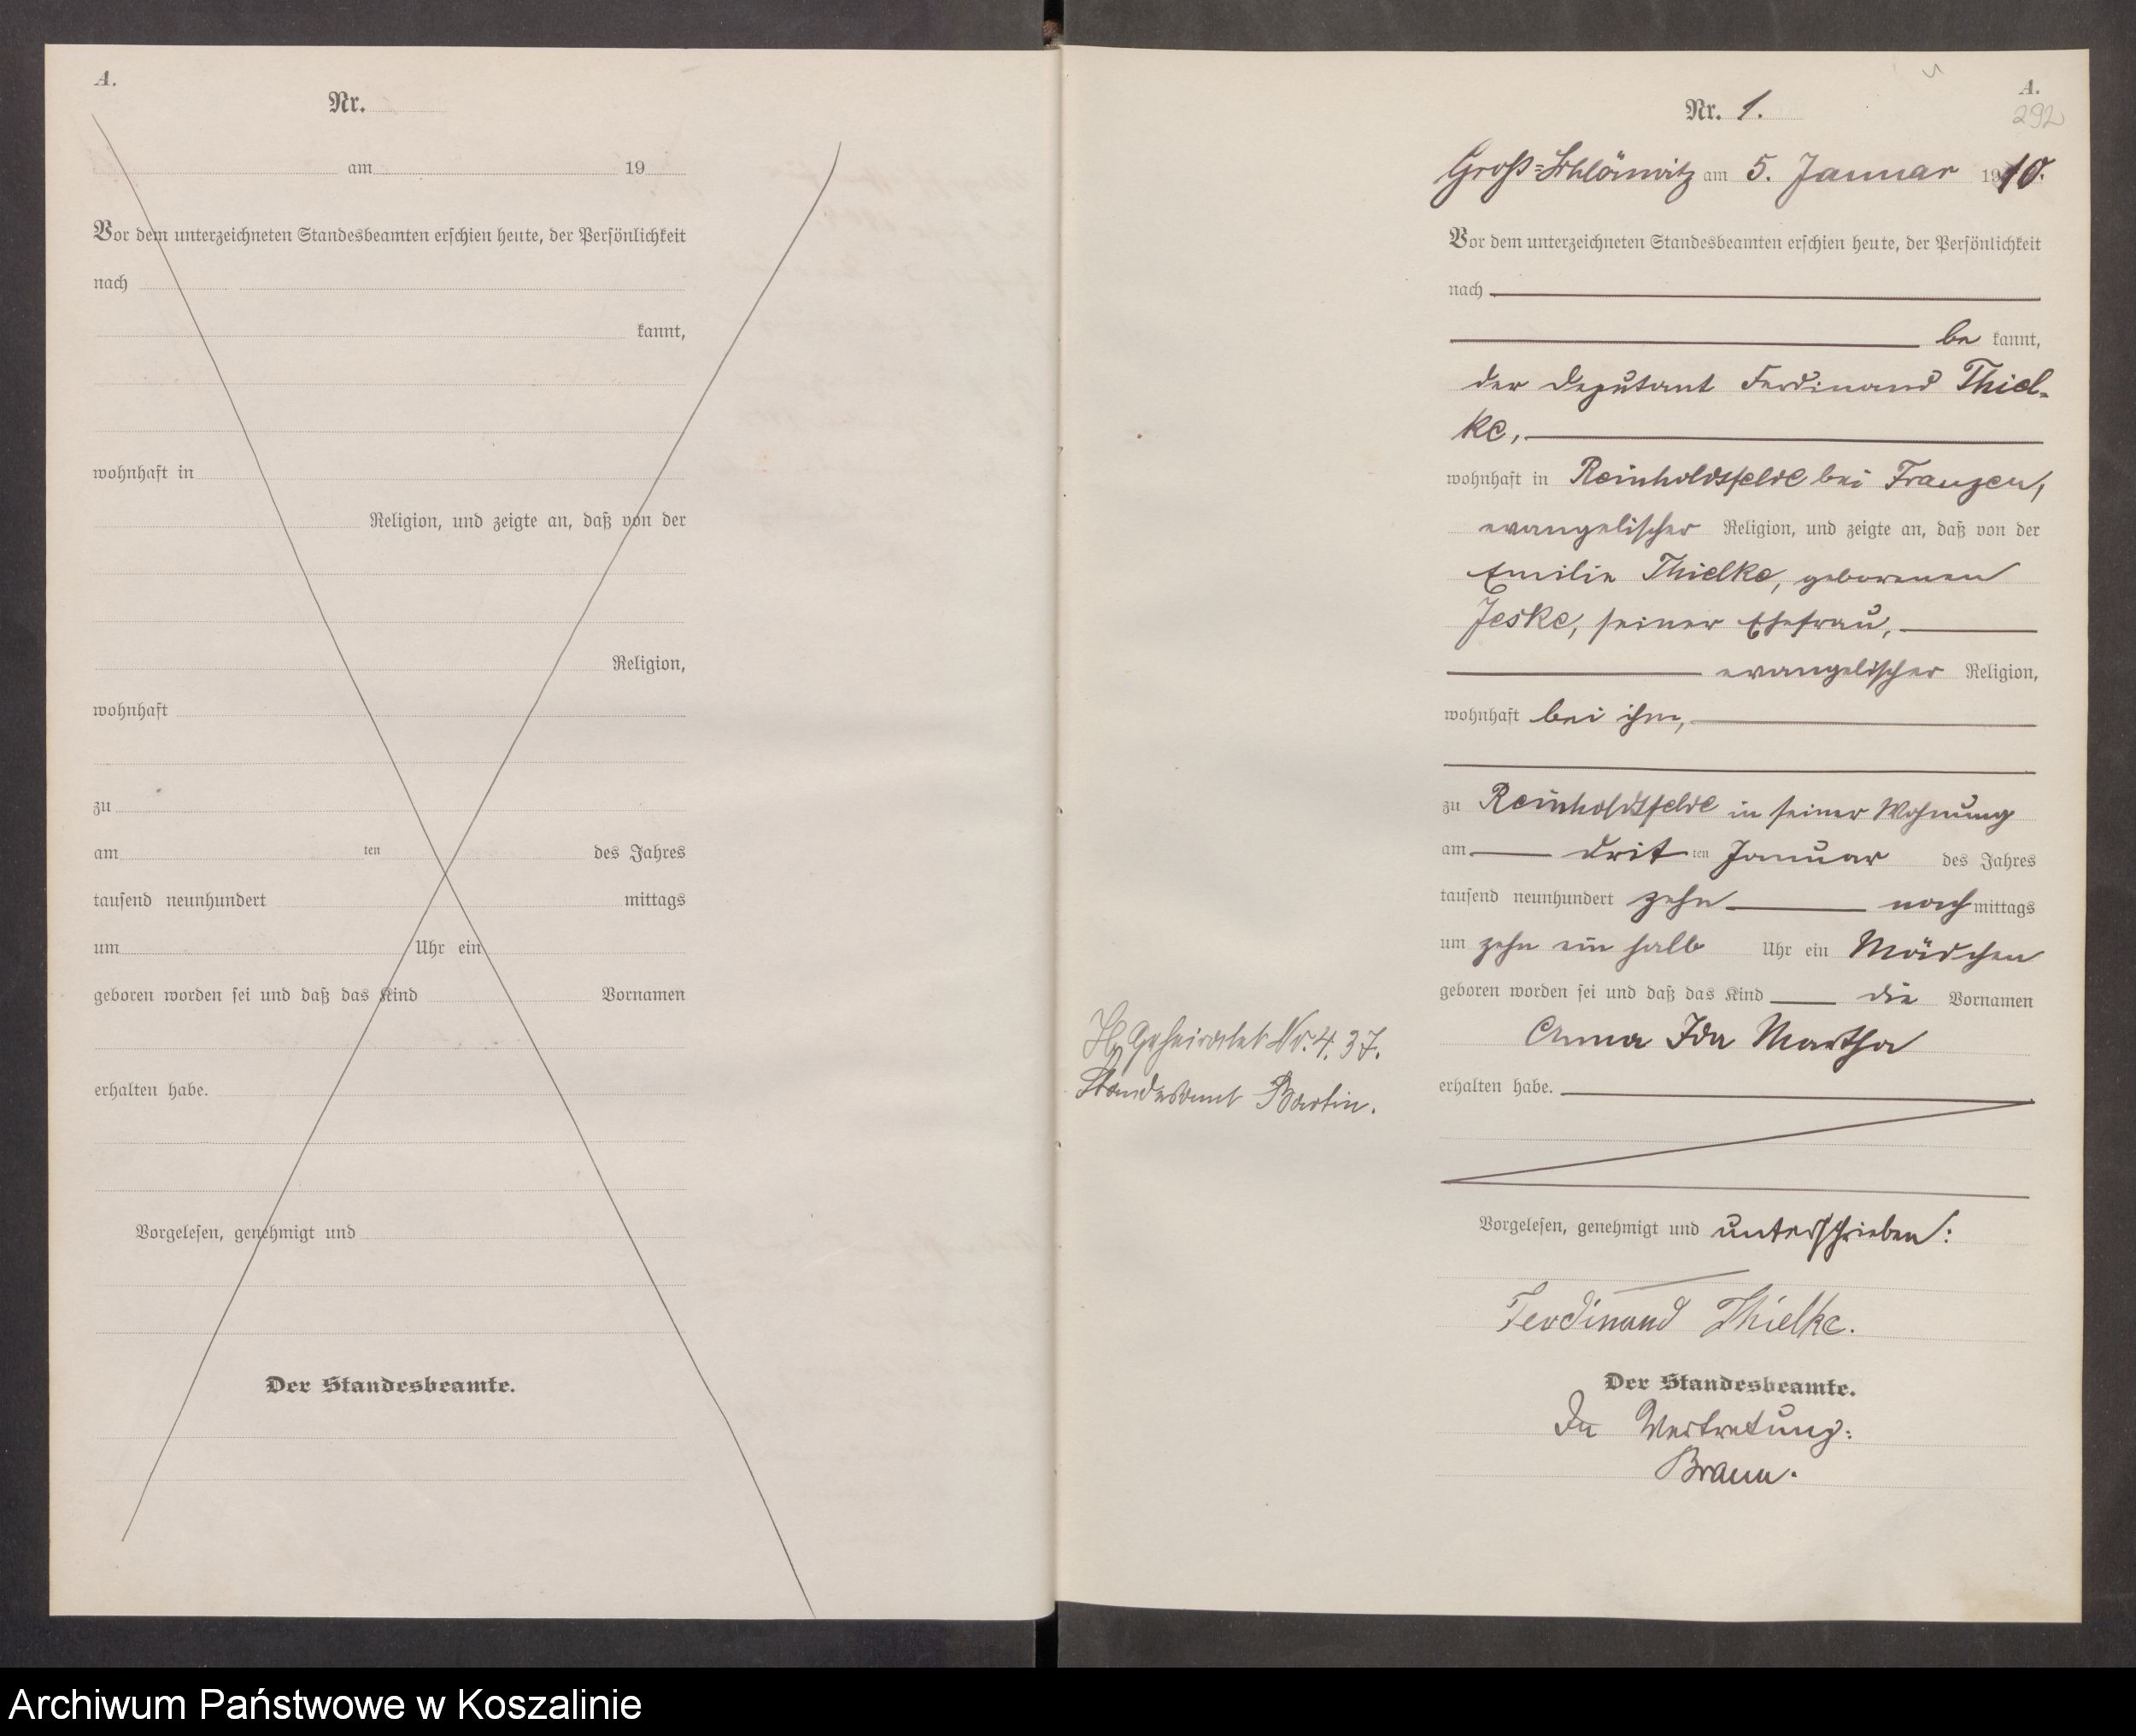 A.
Nr.
am 19
Vor dem unterzeichneten Standesbeamten erschien heute, der Persönlichkeit
nach
kannt,
wohnhaft in
Religion, und zeigte an, daß von der
Religion,
wohnhaft
zu
am ten des Jahres
tausend neunhundert mittags
um Uhr ein
geboren worden sei und daß das Kind Vornamen
erhalten habe.
Vorgelesen, genehmigt und
Der Standesbeamte.
A.
292
Nr. 1.
am 5. Januar 1910.
Vor dem unterzeichneten Standesbeamten erschien heute, der Persönlichkeit
nach
be kannt,
der Deputant Ferdinand Thiel-
ke,
wohnhaft in Reinholdsfelde bei Franzen,
evangelischer Religion, und zeigte an, daß von der
Emilie Thielke, geborenen
Jeske, seiner Ehefrau,
evangelischer Religion,
wohnhaft bei ihm,
zu Reinholdsfelde in seiner Wohnung
am drit ten Januar des Jahres
tausend neunhundert zehn nach mittags
um zehn ein halb Uhr ein Mädchen
geboren worden sei und daß das Kind die Vornamen
Anna Ida Martha
erhalten habe.
Geheiratet Nr. 4. 37.
Standesamt Bartin.
Vorgelesen, genehmigt und unterschrieben:
Ferdinand Thielke.
Der Standesbeamte.
In Vertretung:
Braun.
Archiwum Państwowe w Koszalinie